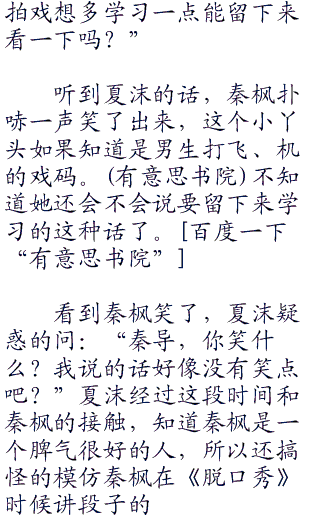 拍戏想多学习一点能留下来
看一下吗？”
听到夏沫的话，秦枫扑
哧一声笑了出来，这个小丫
头如果知道是男生打飞、机
的戏码。(有意思书院)不知
道她还会不会说要留下来学
习的这种话了。[百度一下
“有意思书院”]
看到秦枫笑了，夏沫疑
惑的问：“秦导，你笑什
么？我说的话好像没有笑点
吧？”夏沫经过这段时间和
秦枫的接触，知道秦枫是一
个脾气很好的人，所以还搞
怪的模仿秦枫在《脱口秀》
时候讲段子的